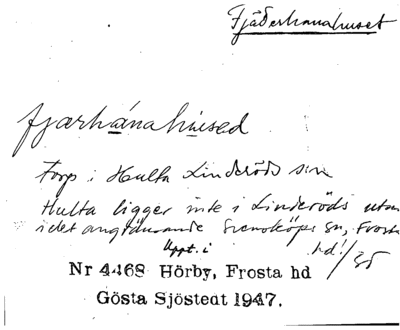 Fjäderhanahuset
fjærhánahúsed
Torp i Hulta Linderöds sn
Hulta ligger inte i Linderöds utan
i det angränsande Svensköps sn, Frosta
Uppt. i hd!/
Nr 4468 Hörby, Frosta hd
Gösta Sjöstedt 1947.